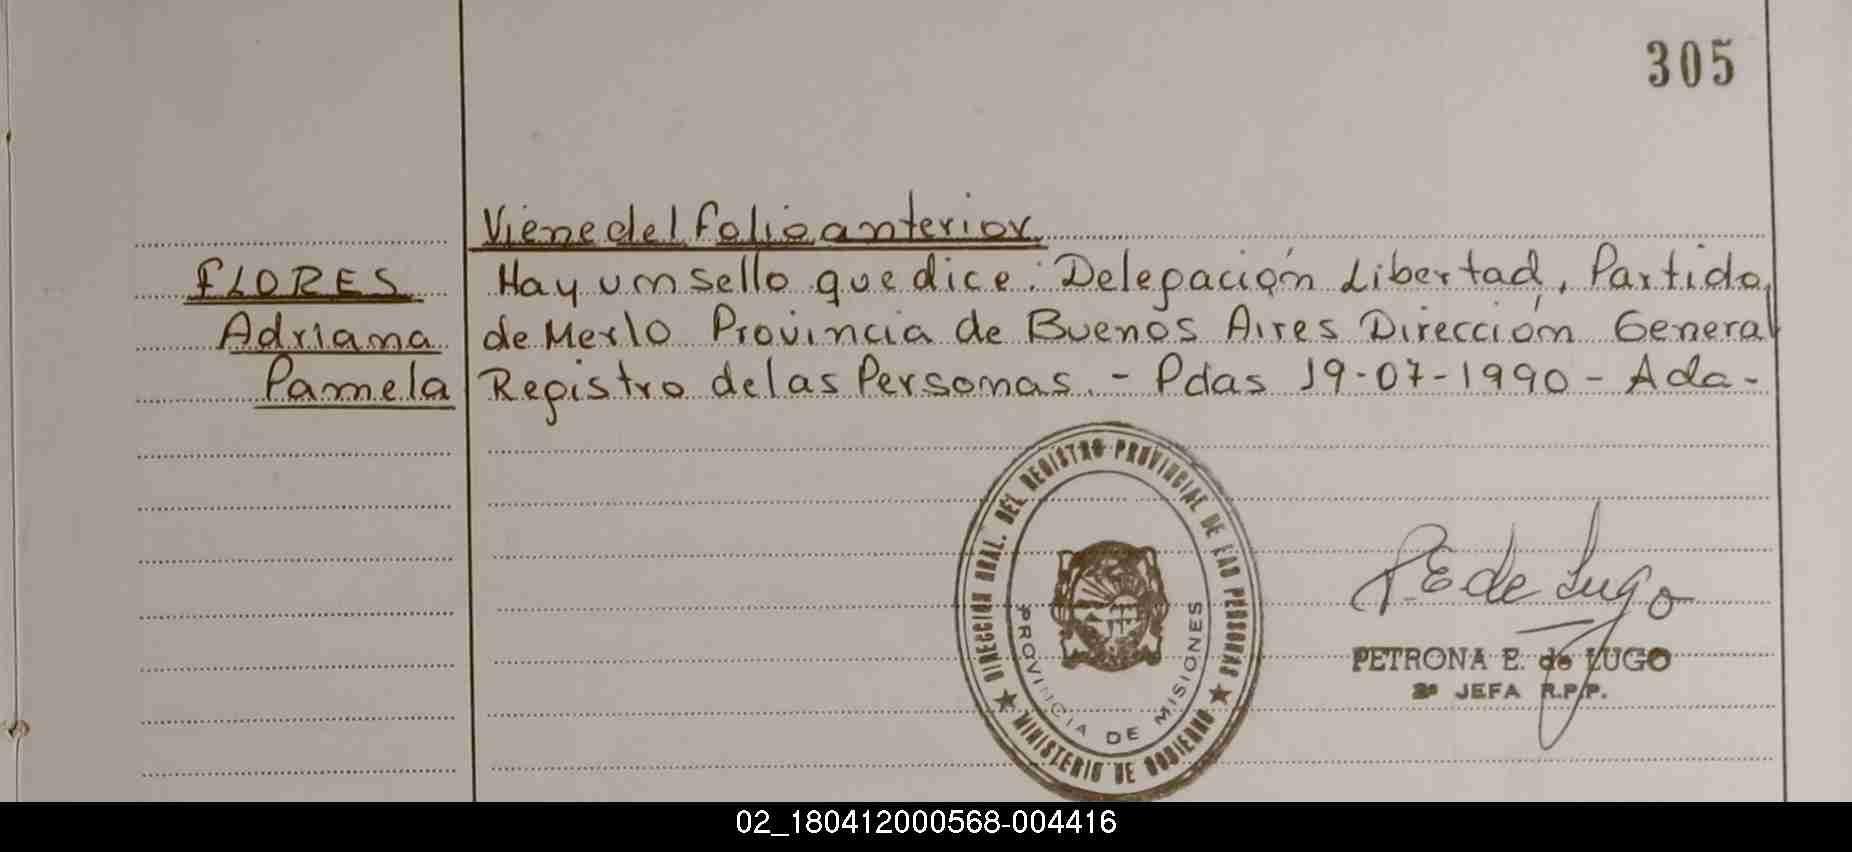 305
Viene del folio anterior
FLORES Hay un sello que dice: Delegación Libertad, Partido
Adriana de Merlo Provincia de Buenos Aires Dirección General
Pamela Registro de las Personas. - Pdas 19-07-1990 - Ada-
DIRECCION GRAL. DEL REGISTRO PROVINCIAL DE LAS PERSONAS
PROVINCIA DE MISIONES
★ MINISTERIO DE GOBIERNO ★
P.E de Lugo
PETRONA E. de LUGO
2ª JEFA R.P.P.
02_180412000568-004416